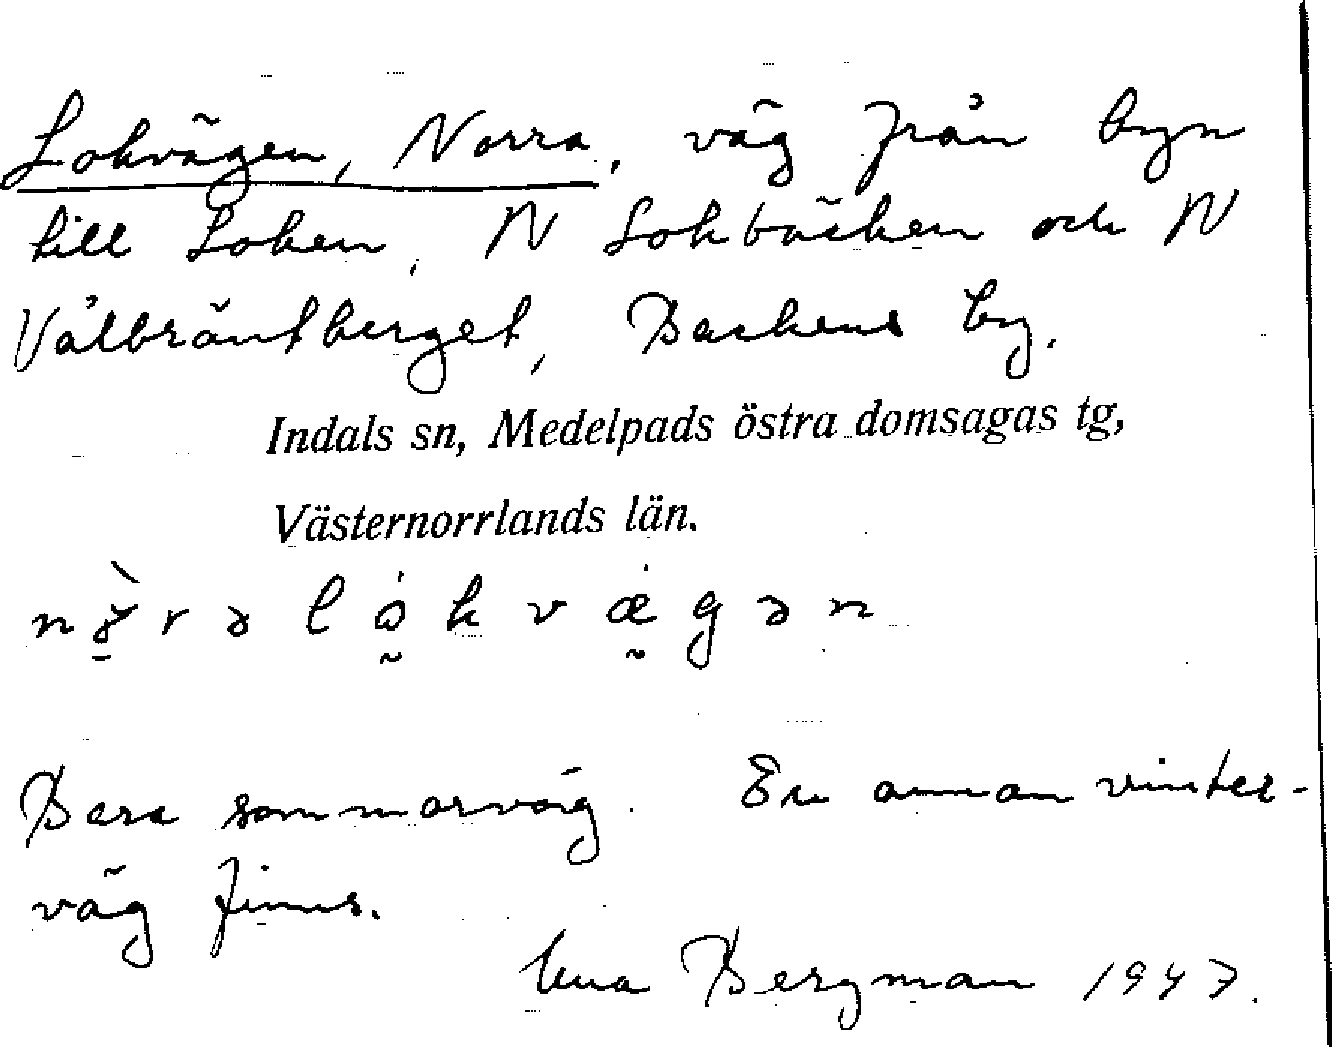 Lokvägen, Norra, väg från byn
till Loken, N Lokbäcken och N
Vålbräntberget, Backens by.
Indals sn, Medelpads östra domsagas tg,
Västernorrlands län.
Bara sommarväg. En annan vinter-
väg finns.
Bergman 1947.